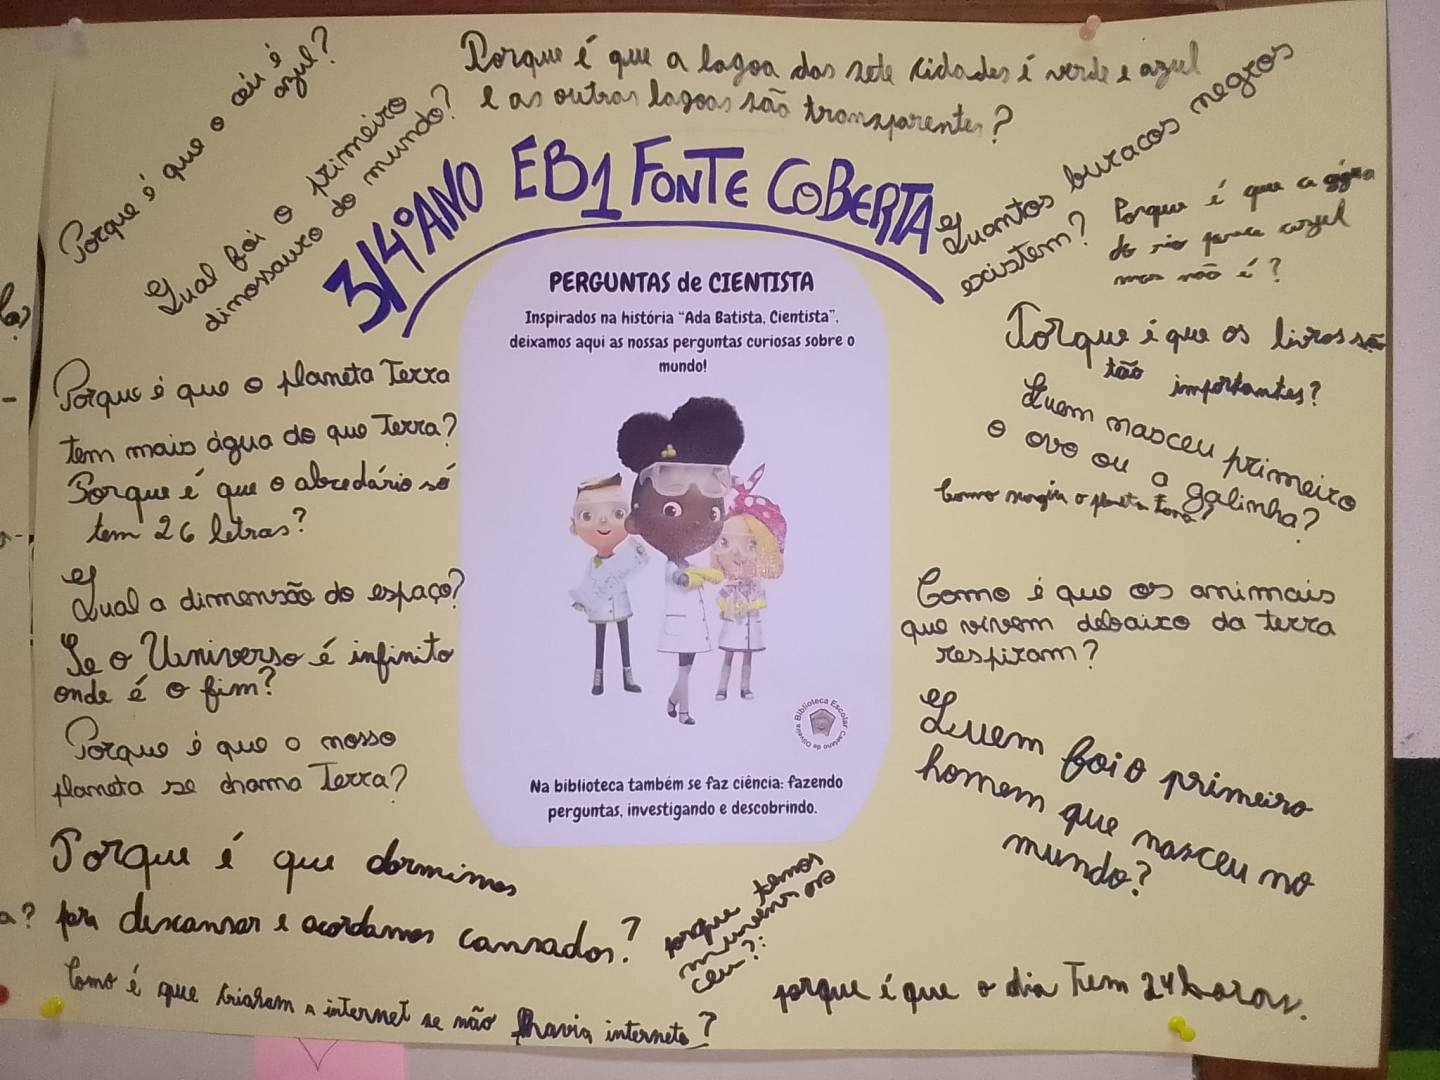 Porque é que o céu é
azul?
Qual foi o primeiro
dinossauro do mundo?
Porque é que a lagoa das sete cidades é verde e azul
e as outras lagoas são transparentes?
Quantos buracos negros
existem?
Porque é que a água
do rio parece azul
mas não é?
3/4º ANO EB1 FONTE COBERTA
PERGUNTAS de CIENTISTA
Inspirados na história “Ada Batista, Cientista”,
deixamos aqui as nossas perguntas curiosas sobre o
mundo!
Biblioteca Escolar
Caetano de Oliveira
Na biblioteca também se faz ciência: fazendo
perguntas, investigando e descobrindo.
Porque é que o planeta Terra
tem mais água do que Terra?
Porque é que o abcedário só
tem 26 letras?
Qual a dimensão do espaço?
Se o Universo é infinito
onde é o fim?
Porque é que o nosso
planeta se chama Terra?
Porque é que dormimos
para descansar e acordamos cansados?
Como é que criaram a internet se não havia internete?
Porque é que os livros são
tão importantes?
Quem nasceu primeiro
o ovo ou a galinha?
Como surgiu o planeta
Como é que os animais
que vivem debaixo da terra
respiram?
Quem foi o primeiro
homem que nasceu no
mundo?
porque temos
no
céu?
porque é que o dia Tem 24 horas.
a?